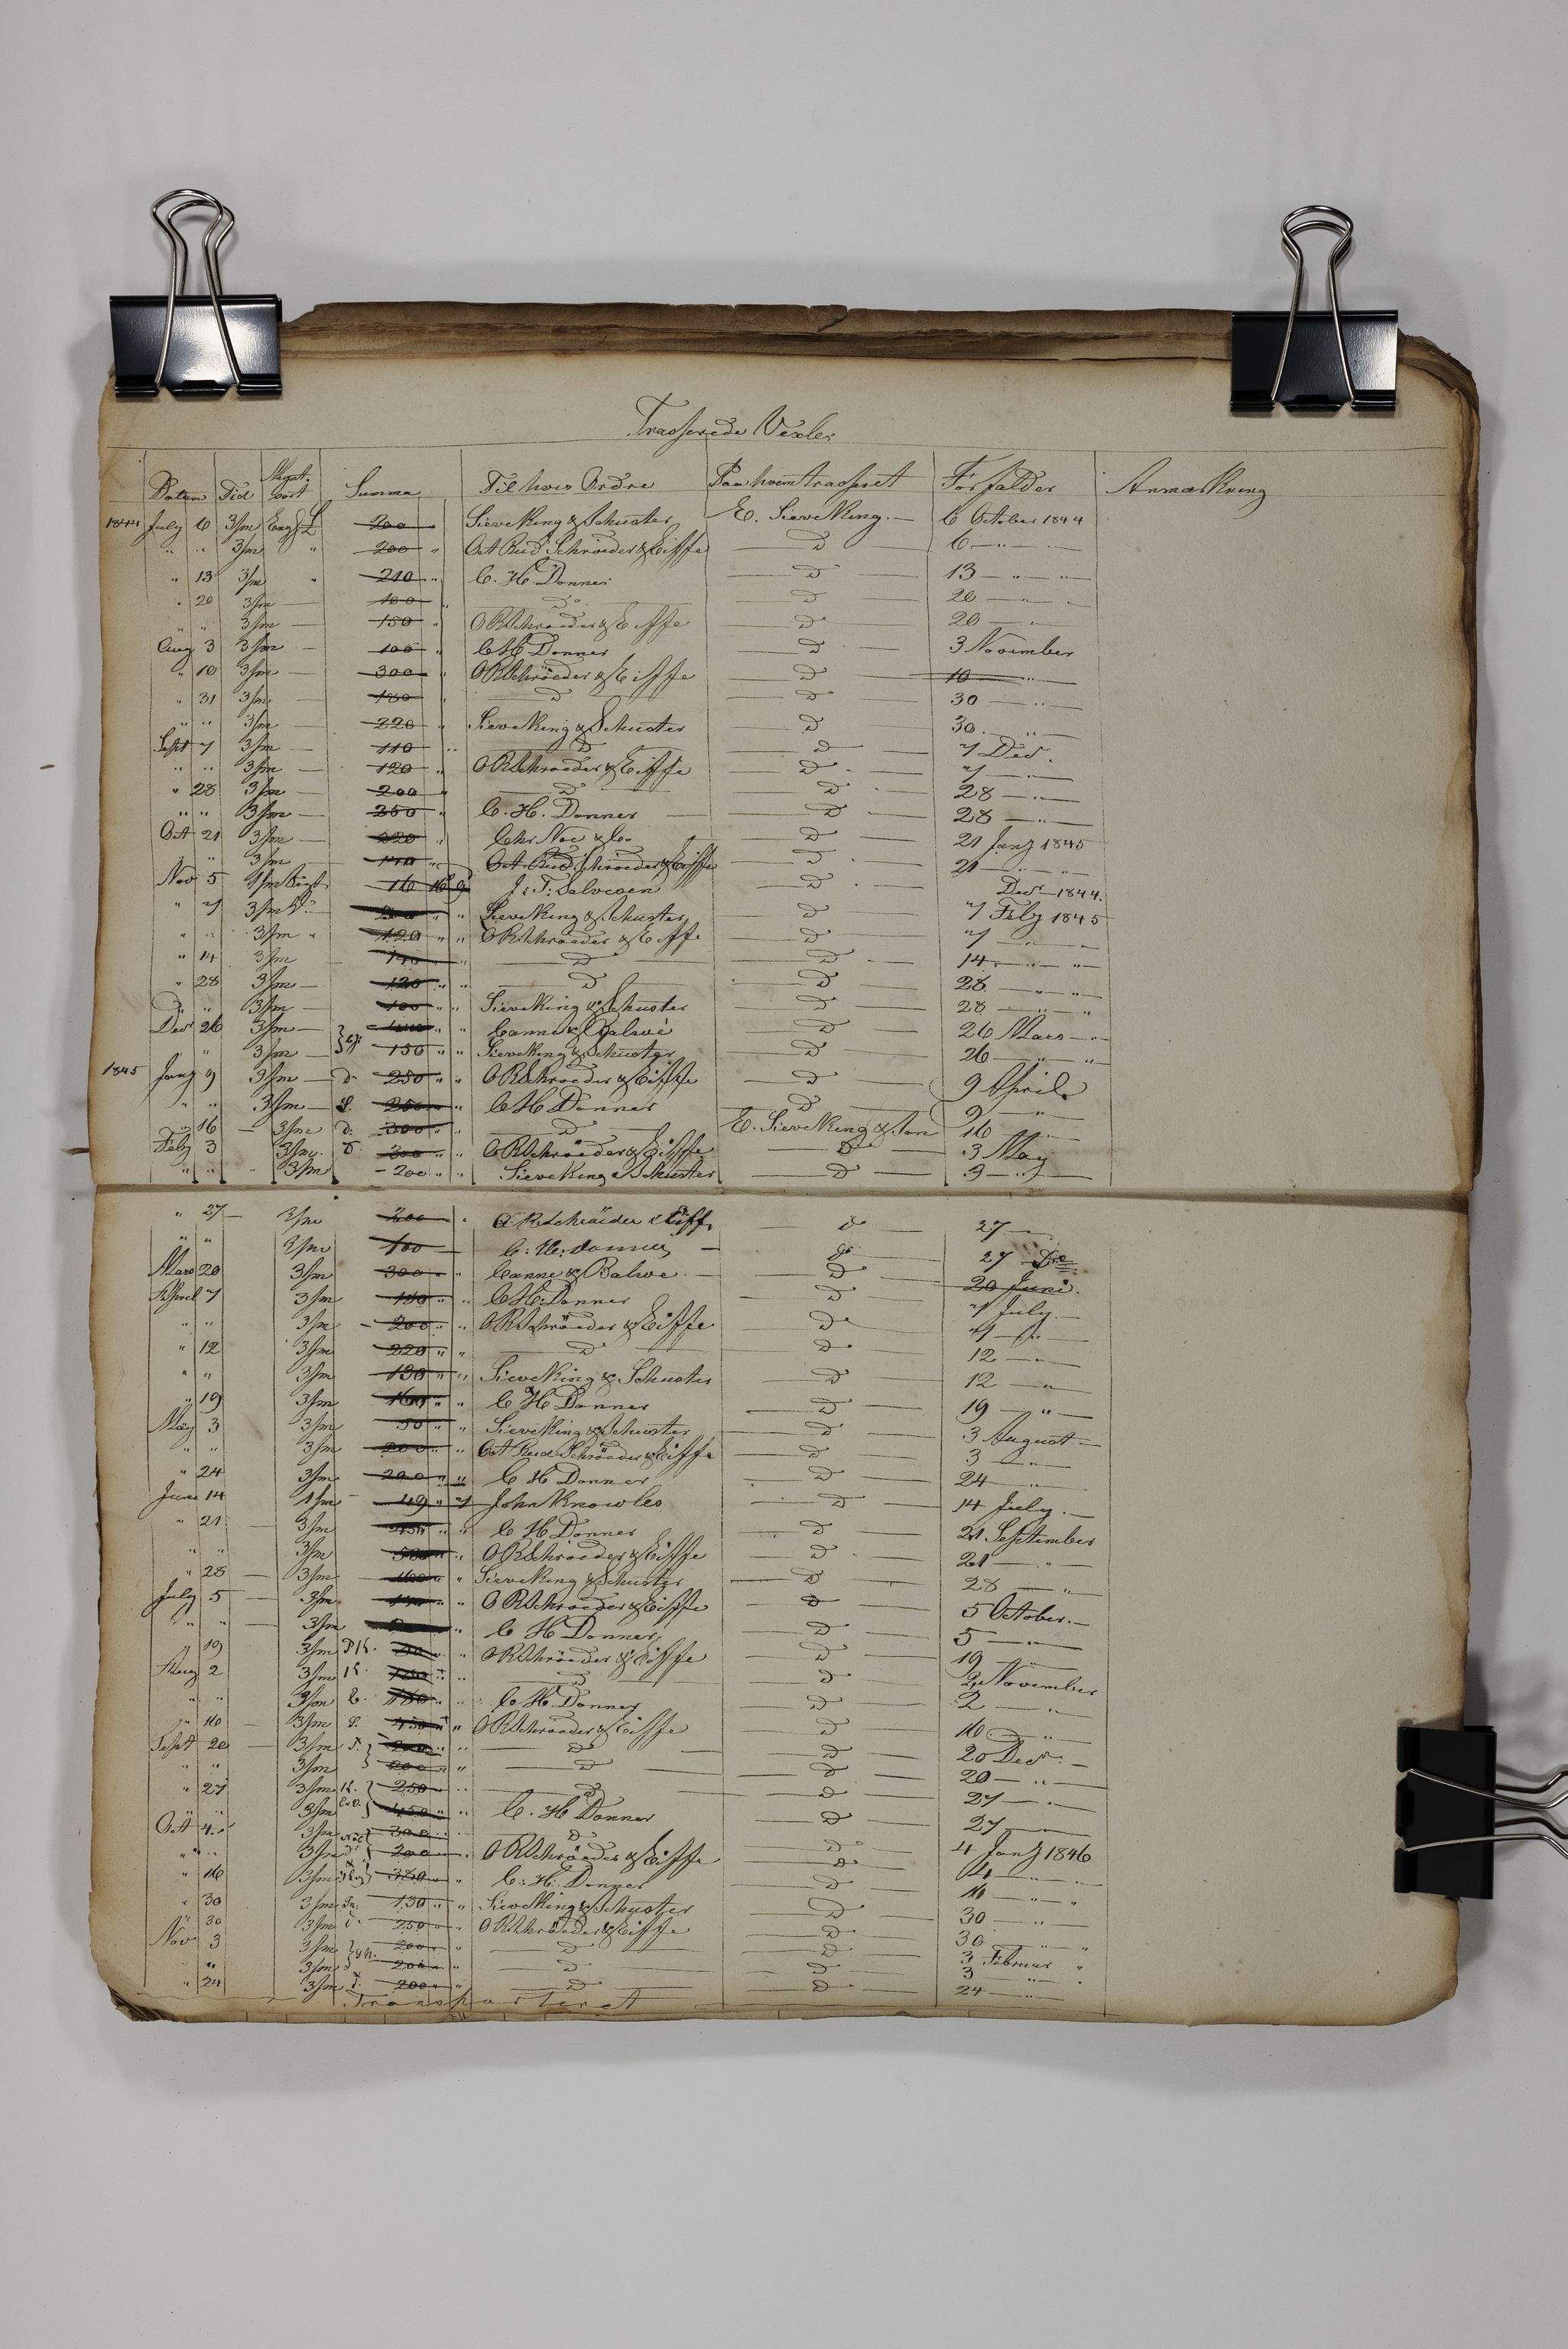 Trasserede Vexler
Datum Tid Mynt-sort Summa Til hvis Ordre Paa hvem trasseret Forfalder Anmærkning
1844 July 6 3/m Engl £ 200 " Sieveking & Schuster E. Sieveking. — 6 October 1844
" " 3/m " 200 " Oct Rud Schroeder & Eiffe — D — 6 — " —
" 13 3/m " 210 " C. H. Donner — D — 13 — " — " —
" 20 3/m — 100 " — Do — — D — 20 — " —
" " 3/m — 150 " O R Schroeder & Eiffe — D — 20 — " —
Aug 3 3/m — 100 " C H Donner — D — 3 November
" 10 3/m — 300 " O R Schröeder & Eiffe — D — 10 — " —
" 31 3/m — 180 " — D — — D — 30 — " —
" " 3/m — 220 " Sieveking & Schuster — D — 30 — " —
Sept 7 3/m — 110 " — D — — D — 7 Decr.
" " 3/m — 120 " O R Schroeder & Eiffe — D — 7 — " —
" 28 3/m — 200 " — D — — D — 28 — " —
" " 3/m — 250 " C. H. Donner — — D — 28 — " —
Oct 21 3/m — 220 " Chr Noe & Co — D — 21 Jany 1845
" 3/m — " Oct Rud Schroeder & Eiffe — D — 21 — " — " —
Nov 5 1/m 16 16 9 J: T: Salvesen — D — Decr 1844.
" 7 3/m " " Sieveking & Schuster — D — 7 Feby 1845
" " 3/m " 120 " " O R Schroeder & Eiffe — D — 7 — " —
" 14 3/m — 140 " — D — — D — 14 — " — " —
" 28 3/m — 120 " " — D — — D — 28 — " — " —
" " 3/m — 100 " " Sieveking & Schuster — D — 28 — " — "
Decr 26 3/m — " " Canne & Balwé — D — 26 Mars — " —
" 3/m — 150 " " Sieveking & Schuster — D — 26 — " — "
1845 Jany 9 3/m — d. 250 " " O R Schroeder & Eiffe — D — 9 April.
" " 3/m — 250 " " C H Donner — D — 9 — " —
" 16 — 3/m d. 300 " " — D — E. Sieveking & Son 16 — " —
Feby 3 3/m 300 " " O R Schröeder & Eiffe — D — 3 May
" " 3/m - 200 " " Sieveking & Schuster — D — 3 — " —
" 27 — 3/m 200 " O. R. Schröeder & Eiffe — d — 27 —
" " 3/m 100 C: H: Donner — — do — 27 Do
Mars 20 3/m 300 " Canne & Balwe — — D — 20 Juni.
April 7 3/m 180 " " C H: Donner — D — 7 July —
" " 3/m - 200 " " O R Schröeder & Eiffe — D — 7 — " —
" 12 3/m 220 " " — D — — D — 12 — " —
" " 3/m 130 " " Sieveking & Schuster — D — 12 — " —
" 19 3/m " " C H Donner — D — 19 — " —
May 3 3/m 50 " " Sieveking & Schuster — D — 3 August —
" " 3/m 200 " " Oct Rud Schröeder & Eiffe — D — 3 — " —
" 24 3/m 200 " " C H Donner — D — 24 — " —
June 14 1/m — 49 " 7 John Knowles — D — 14 July. —
" 21 — 3/m " " C H Donner — D — 21 September
" " 3/m " O R Schroeder & Eiffe — D — 21 — " —
" 28 — 3/m " " Sieveking & Schuster — D — 28 — " —
July 5 — 3/m " " O R Schroeder & Eiffe — D — 5 October. —
" " — 3/m " C H Donner — D — 5 — " —
" 19 3/m " O R Schroeder & Eiffe — D — 19 — " —
Aug 2 3/m " " — D — — D — 2 November
" " 3/m " " C H Donner — D — 2 — " —
" 16 — 3/m " " O R Schroeder & Eiffe — D — 16 — " —
Sept 20 — 3/m " " — D — — D — 20 Decr. —
" " 3/m " " — D — — D — 20 — " —
" 27 3/m 250 " " — D — — D — 27 — " —
" " 3/m " " C. H Donner — D — 27 — " —
Oct 4 " 3/m 300 " " — D — — D — 4 Jany 1846
" " 3/m 200 " " O R Schröeder & Eiffe — D — 4 — " —
" 16 3/m " " C: H: Donner — D — 16 — " — "
" 30 3/m 130 " " Sieveking & Schuster — D — 30 — " —
" 30 3/m d 250 " " O R Schröeder & Eiffe — D — 30 — " — "
Nov 3 3/m 200 " " — D — — D — 3 Februar "
" " 3/m 200 " " — D — — D — 3 — " — "
" 24 3/m 200 " " — D — — D — 24 — " —
Transporteret